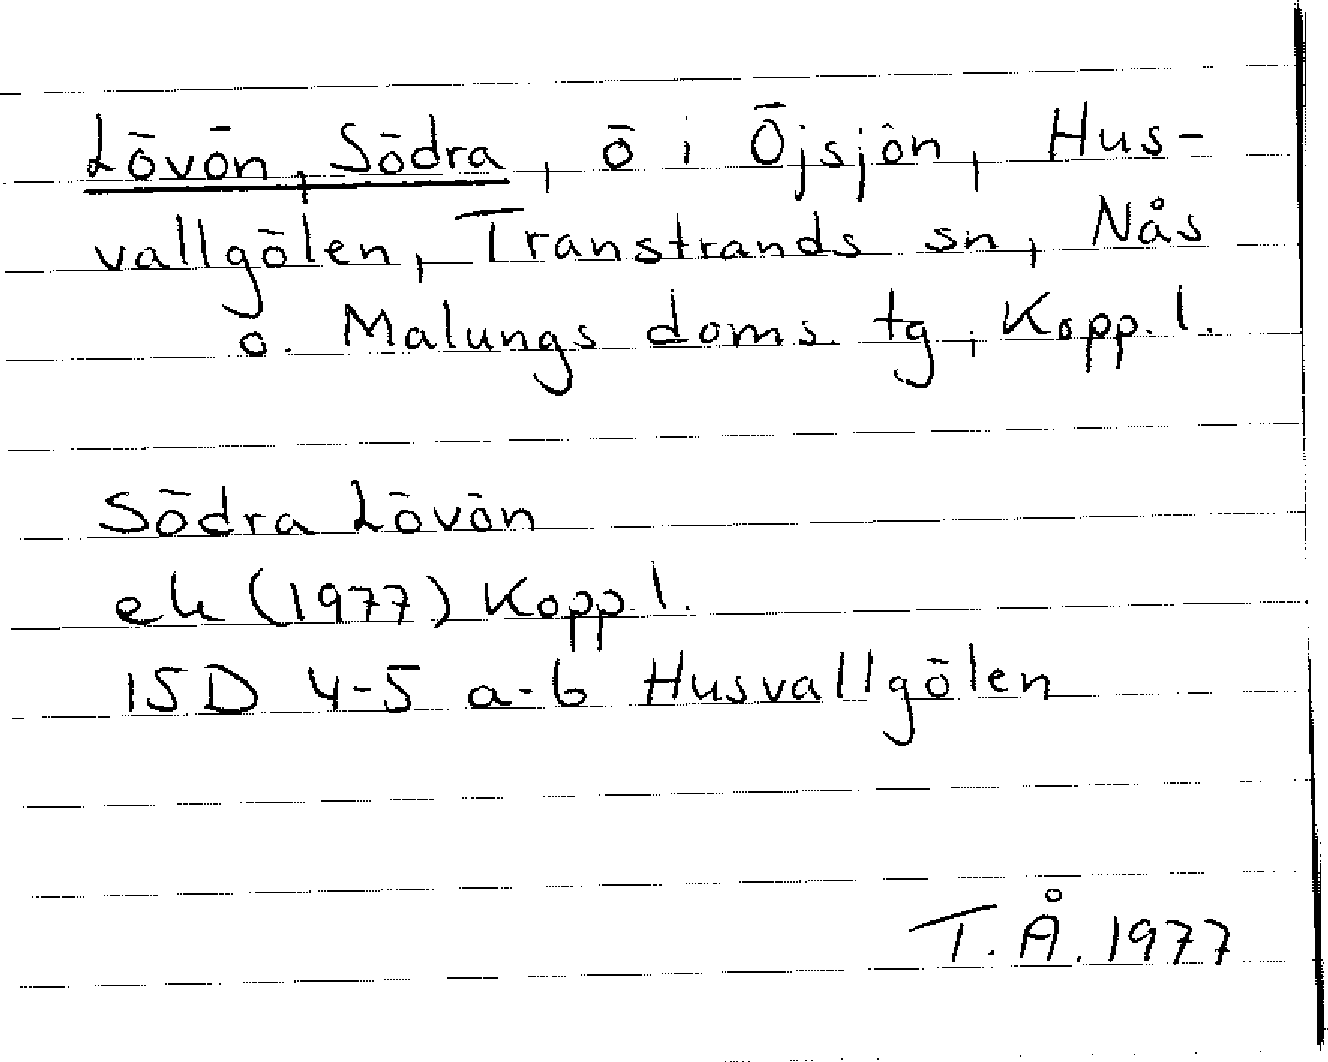 Lövön, Södra, ö i Öjsjön, Hus-
vallgölen, Transtrands sn, Nås
o. Malungs doms. tg, Kopp. l.
Södra Lövön
ek (1977) Kopp l.
15D 4-5 a-b Husvallgölen
T. Å. 1977